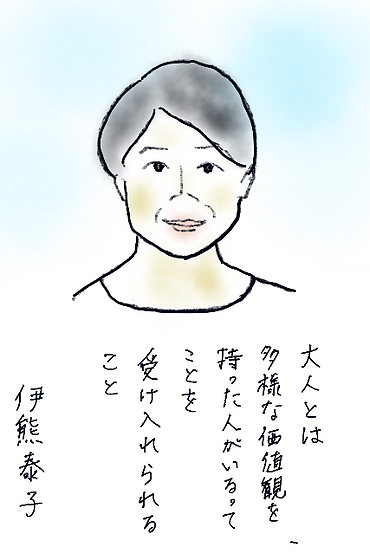 大人とは
多様な価値観を
持った人がいるって
ことを
受け入れられる
こと
伊熊泰子